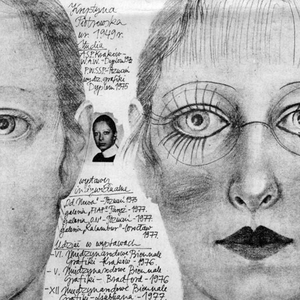 Krystyna
Piotrowska
ur. 1949r.
Studia
ASP Kraków-
W.A.W.-Dyplom
PWSSP-Poznań
wydz. grafiki
Dyplom 1975
wystawy
indywidualne
Poznań 1975
galeria "PSAP" 1977
galeria "ON"-Poznań-1977
galeria "Kalambur"-Wrocław
1977
Udział w wystawach
-VI. Międzynarodowe Biennale
Grafiki-Kraków-1976
-V. Międzynarodowe Biennale
Grafiki-Bradford-1976
-XII Międzynarodowe Biennale
Grafiki-Ljubljana-1977